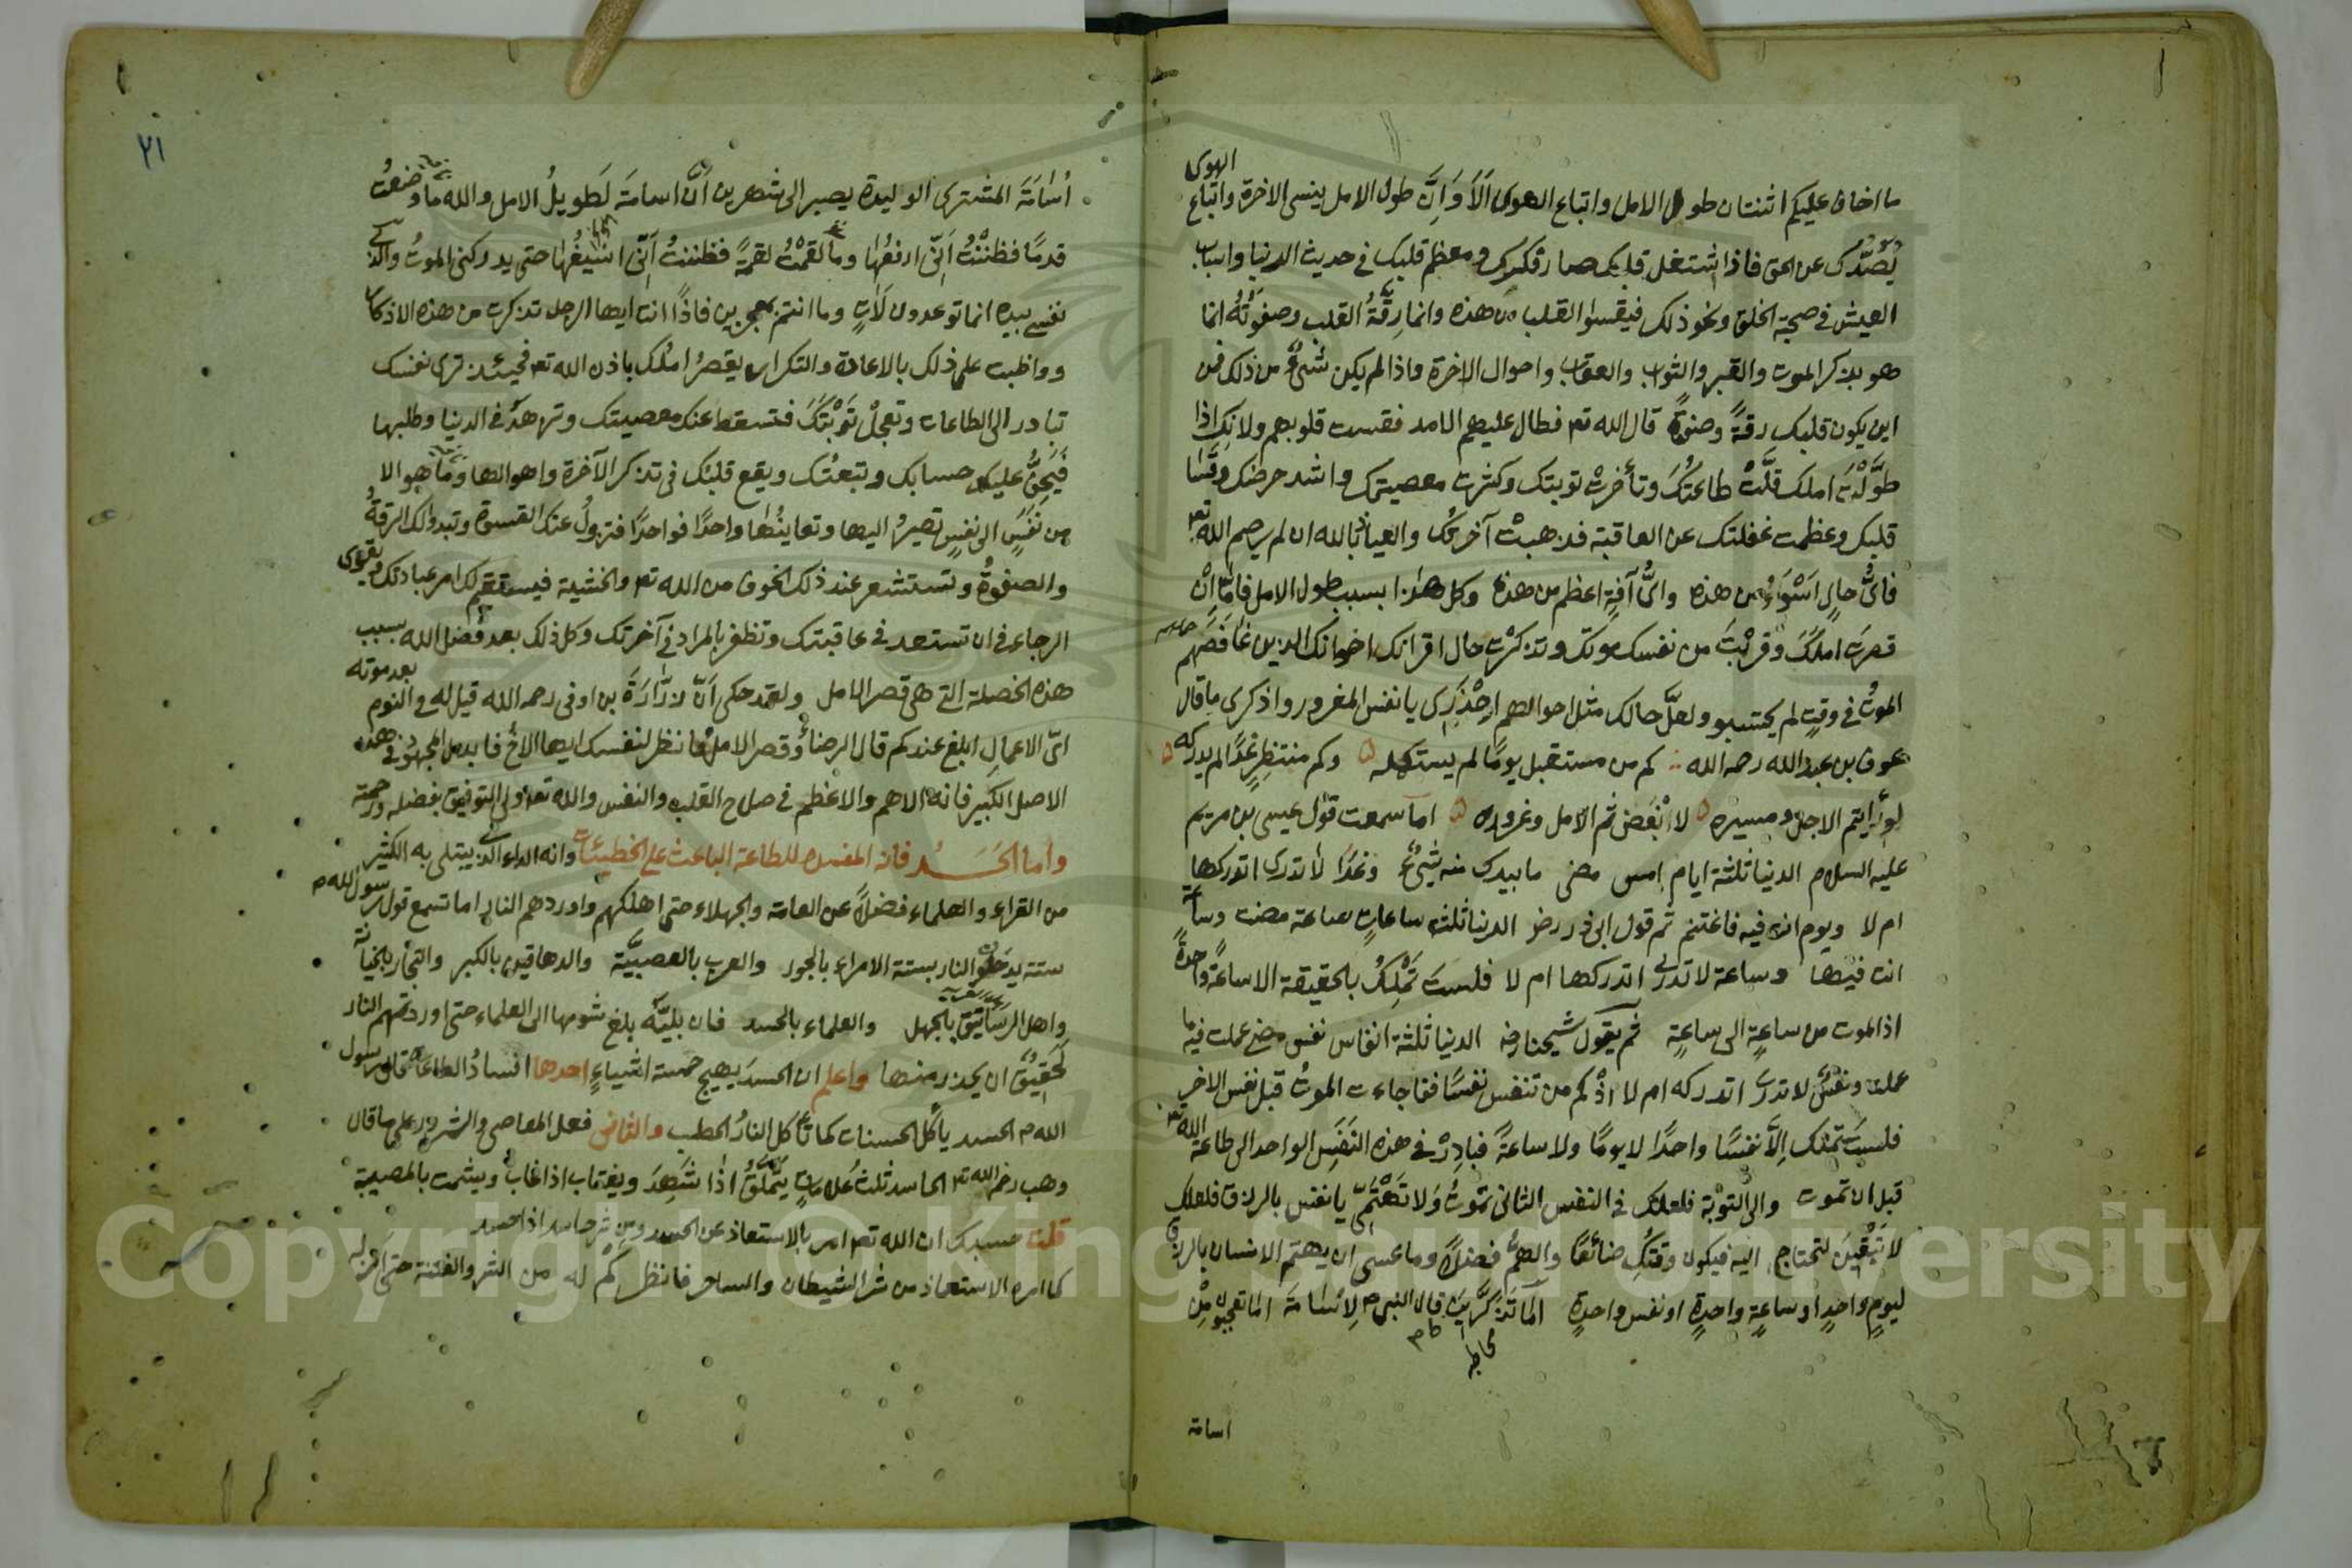 ما اخاف عليكم اثنتان طول الامل واتباع الهوى اَلَا وَاِنَّ طول الامل ينسى الاخرة واتباع الهوى
يَصُدّك عن الحق فاذا اشتغل قلبك صار فكرك ومعظم قلبك فى حديث الدنيا واسباب
العيش فى صحبة الخلق ونحو ذلك فيقسوا القلب من هذه وانما رقّةُ القلب وصفوتُه انما
هو بذكر الموت والقبر والثواب والعقاب واحوال الاخرة واذا لم يكن شئٌ من ذلك فمن
اين يكون قلبك رقةً وصفوةً قال الله تع فطال عليهم الامد فقست قلوبهم ولانك اذا
طوَّلْتَ املك قلَّتْ طاعتُك وتأخرتْ توبتك وكثرت معصيتك واشد حرصك وقسا
قلبك وعظمت غفلتك عن العاقبة فذهبتْ آخرتُك والعياذ بالله ان لم يرحم الله تع
فاىُّ حالٍ اَسْوَاءُ من هذه واىُّ آفةٍ اعظم من هذه وكل هذا بسبب طول الامل فامّا اِنْ
قصرتَ املكَ وقربْتَ من نفسك موتك وتذكرْتَ حال اقرانك واخوانك الذين غَافَصَهم
الموتُ فى وقتٍ لم يحتسبو ولعلَّ حالك مثل احوالهم اِحْذَرِى يا نفس المغرور واذكرى ما قال
عوف بن عبد الله رحمه الله كم من مستقبل يومًا لم يستكمله وكم منتظِر غدًا لم يدركه
لو رأيتم الاجل ومسيره لاَبْغَضْتم الامل وغروره اما سمعت قول عيسى بن مريم
عليه السلام الدنيا ثلثة ايام امس مضى ما بيدك منه شئٌ وغدًا لا تدرى اتدركها
ام لا ويوم انت فيه فاغتنم ثم قول ابى ذر رض الدنيا ثلث ساعاتٍ ساعة مضت وساعة
انت فيها وساعة لا تدرى اتدركها ام لا فلستَ تَمْلِكُ بالحقيقة الا ساعةً واحدةً
اذ الموت من ساعةٍ الى ساعةٍ ثم يقول شيخنا رضه الدنيا ثلثة انفاس نفس مضى عملت فيه ما
عملت ونفسٌ لا تدرى اتدركه ام لا اذْ كم من تنفس نفسًا ففاجاءت الموتُ قبل نفس الاخر
فلستَ تملك اِلاَّ نفسًا واحدًا لا يومًا ولا ساعةً فبادِرْ فى هذه النَفَسِ الواحد الى طاعة الله تع
قبل ان تموت والى التوْبة فلعلك فى النفس الثانى تموتُ وَلا تَهْتَمِّى يا نفس بالرزق فلعلك
لا تَبْقَيْنَ لتحتاج اليه فيكون وقتُكِ ضائعًا والهمُّ فضلاً وما عسى ان يهتم الانسان بالرزق
ليومٍ واحدٍ او ساعةٍ واحدةٍ او نفس واحدةٍ اَمَا تَذكَّرِيْنَ قال النبى م لِاُسَامَة الا تعجبون مِنْ
اسامة
٢١
اُسَامَةَ المشترى الوليدة يصير الى شهرين اَنَّ اسامَة لَطَويلُ الامل والله ما وضعْتُ
قدمًا فظننْتُ اَنِّى ارفعُها وما لقمْتُ لقمةً فظننتُ اَنِّى اسِيغُها حتى يدركنى الموتُ والذى
نفسى بيده انما توعدون لَآتٍ وما انتم بمعجزين فاذًا انت ايها الرجل تذكرت من هذه الاذكار
وواظبت على ذلك بالاعادة والتكرار يقصرُ املُك باذن الله تع فحينئذ ترى نفسك
تبادر الى الطاعات وتعجلْ تَوْبَتَكَ فتسقط عنك معصيتك وتزهدُ فى الدنيا وطلبها
فَيَخِفُّ عليك حسابك وتبعتُك ويقع قلبُك فى تذكر الآخرة واهوالها وما هو الا
من نَفَسٍ الى نفسٍ تصيرُ اليها وتعاينُها واحدًا فواحدًا فتزولُ عنك القسوة وتبدوا لك الرقةُ
والصفوةُ وتستشعر عند ذلك الخوف من الله تع والخشية فيستقيم لك امر عبادتك ويقوى
الرجاء فى ان تستعد فى عاقبتك وتظفر بالمراد فى آخرتك وكل ذلك بعد فضل الله بسبب
هذه الخصلة التى هى قصر الامل ولقد حكى اَنّ زرّارَةَ بن اوفى رحمه الله قيل له فى النوم بعد موته
اىّ الاعمالِ ابلغ عندكم قال الرضاءُ وقصر الامل فانظر لنفسك ايها الاخُ فابذل المجهودَ فى هذه
الاصل الكبير فانه الاهم والاعظم فى صلاح القلب والنفس والله تع ولى التوفيق بفضله ورحمته
واما الحَسَدُ فانه المفسد للطاعة الباعث على الخطيئات وانه الداء الذى يبتلى به الكثير
من القراء والعلماء فضلاً عن العامة والجهلاء حتى اهلكهم واوردهم النار اما تسمع قول رسول الله م
ستة يدخلون النار بستة الامراء بالجور والعرب بالعصبيَّة والدهاقين بالكبر والتجّار بالخيانة
واهل الرساتيق بالجهل والعلماء بالحسد فان بليّة بلغ شومها الى العلماء حتى اوردتهم النار
لَحَقيقٌ ان يحذر منها واعلم ان الحسدَ يهيج خمسة اشياءٍ احدها افسادُ الطاعات قال رسول
الله م الحسد يأكل الحسنات كما تأكل النارُ الحطب والثانى فعل المعاصى والشرور على ما قال
وهب رضى الله تع الحاسد ثلثُ علاماتٍ يَتَملَّقُ اذا شَهِدَ ويغتاب اذا غاب ويشمت بالمصيبة
قلت حسبك ان الله تع امر بالاستعاذ عن الحسد ومن شر حاسد اذا حسد
كما امره الاستعاذ من شر الشيطان والساحر فانظر كَمْ له من الشر والفتنة حتى انزله